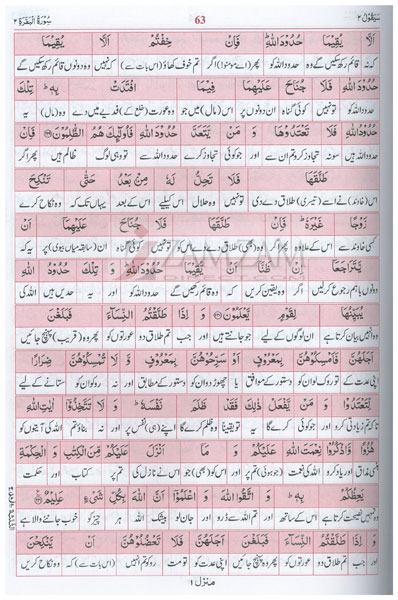 سَيَقُوْلُ ٢ 63 سُوْرَةُ الْبَقَرَة ٢
اَلَّا يُقِيْمَا حُدُوْدَ اللّٰهِ ؕ فَاِنْ خِفْتُمْ اَلَّا يُقِيْمَا
کہ نہ قائم رکھ سکیں گے وہ حدود اللہ کو پھر (اے مومنو) اگر تم خوف کھاؤ (اس بات سے) کہ نہیں وہ دونوں قائم رکھ سکیں گے
حُدُوْدَ اللّٰهِ ۙ فَلَا جُنَاحَ عَلَيْهِمَا فِيْمَا افْتَدَتْ بِهٖ ؕ تِلْكَ
حدود اللہ کو تو نہیں کوئی گناہ ان دونوں پر اس (مال) میں جو وہ عورت (خلع کے) فدیے میں دے وہ (مال) یہ
حُدُوْدُ اللّٰهِ فَلَا تَعْتَدُوْهَا ۚ وَ مَنْ يَّتَعَدَّ حُدُوْدَ اللّٰهِ فَاُولٰٓئِكَ هُمُ الظّٰلِمُوْنَ فَاِنْ
حدود اللہ ہیں سو نہ تجاوز کرو تم ان سے اور جو کوئی تجاوز کرے حدود اللہ سے تو وہی لوگ ظالم ہیں پھر اگر
طَلَّقَهَا فَلَا تَحِلُّ لَهٗ مِنْۢ بَعْدُ حَتّٰى تَنْكِحَ
اس (خاوند) نے اسے (تیسری) طلاق دے دی تو نہیں وہ حلال اس کیلیے اس کے بعد یہاں تک کہ وہ نکاح کرے
زَوْجًا غَيْرَهٗ ؕ فَاِنْ طَلَّقَهَا فَلَا جُنَاحَ عَلَيْهِمَاۤ اَنْ
کسی خاوند سے اس کے علاوہ پھر اگر وہ (بھی) طلاق دے دے اس کو تو نہیں کوئی گناہ ان (سابقہ میاں بیوی) پر یہ
يَّتَرَاجَعَاۤ اِنْ ظَنَّاۤ اَنْ يُّقِيْمَا حُدُوْدَ اللّٰهِ ؕ وَ تِلْكَ حُدُوْدُ اللّٰهِ
دونوں باہم رجوع کرلیں اگر وہ یقین کریں کہ وہ قائم رکھیں گے حدود اللہ کو اور یہ حدیں ہیں اللہ کی
يُبَيِّنُهَا لِقَوْمٍ يَّعْلَمُوْنَ وَ اِذَا طَلَّقْتُمُ النِّسَآءَ فَبَلَغْنَ
وہ انہیں بیان کرتا ہے ان لوگوں کے لیے جو جانتے ہیں اور جب تم طلاق دو عورتوں کو پھر وہ (قریب) پہنچ جائیں
اَجَلَهُنَّ فَاَمْسِكُوْهُنَّ بِمَعْرُوْفٍ اَوْ سَرِّحُوْهُنَّ بِمَعْرُوْفٍ ۪ وَّ لَا تُمْسِكُوْهُنَّ ضِرَارًا
اپنی عدت کے تو روک لو ان کو دستور کے موافق یا چھوڑ دو ان کو دستور کے مطابق اور نہ روکو ان کو ستانے کے لیے
لِّتَعْتَدُوْا ۚ وَ مَنْ يَّفْعَلْ ذٰلِكَ فَقَدْ ظَلَمَ نَفْسَهٗ ؕ وَ لَا تَتَّخِذُوْۤا اٰيٰتِ اللّٰهِ
تاکہ تم زیادتی کرو اور جو کوئی کرے گا یہ تو یقیناً وہ ظلم کرے گا اپنے (ہی) نفس پر اور نہ بناؤ تم اللہ کی آیتوں کو
هُزُوًا ؗ وَّ اذْكُرُوْا نِعْمَتَ اللّٰهِ عَلَيْكُمْ وَ مَاۤ اَنْزَلَ عَلَيْكُمْ مِّنَ الْكِتٰبِ وَ الْحِكْمَةِ
ہنسی مذاق اور یاد کرو اللہ کی نعمت (جو ہوئی) تم پر اور اس کو (بھی) جو اس نے نازل کی تم پر کتاب اور حکمت
يَعِظُكُمْ بِهٖ ؕ وَ اتَّقُوا اللّٰهَ وَ اعْلَمُوْۤا اَنَّ اللّٰهَ بِكُلِّ شَيْءٍ عَلِيْمٌ
وہ تمہیں نصیحت کرتا ہے اس کے ساتھ اور تم اللہ سے ڈرو اور جان لو بیشک اللہ ہر چیز کو خوب جاننے والا ہے
وَ اِذَا طَلَّقْتُمُ النِّسَآءَ فَبَلَغْنَ اَجَلَهُنَّ فَلَا تَعْضُلُوْهُنَّ اَنْ يَّنْكِحْنَ
اور جب تم طلاق دو عورتوں کو پھر وہ پہنچ جائیں اپنی عدت کو تو مت روکو تم انہیں (اس بات سے) کہ وہ نکاح کریں
منزل ١